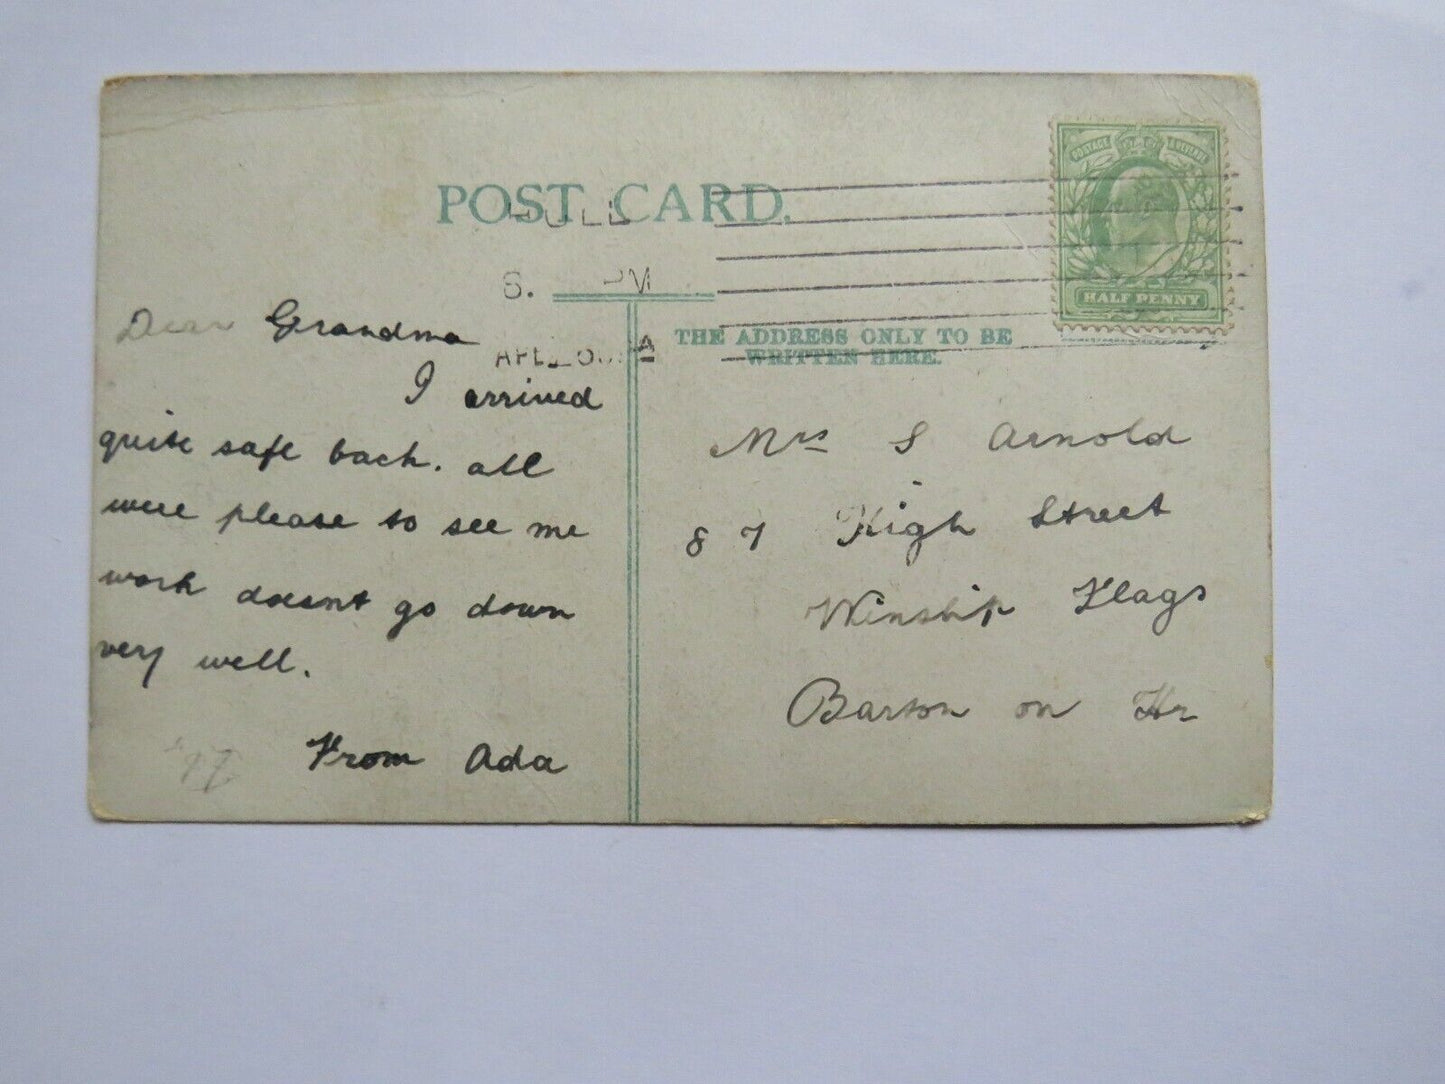 POST CARD.
HULL
6. PM
THE ADDRESS ONLY TO BE
WRITTEN HERE.
POSTAGE & REVENUE
HALF PENNY
Dear Grandma
I arrived
quite safe back. all
were please to see me
work doesnt go down
very well.
From Ada
Mrs S Arnold
87 High Street
Winship Flags
Barton on Hr